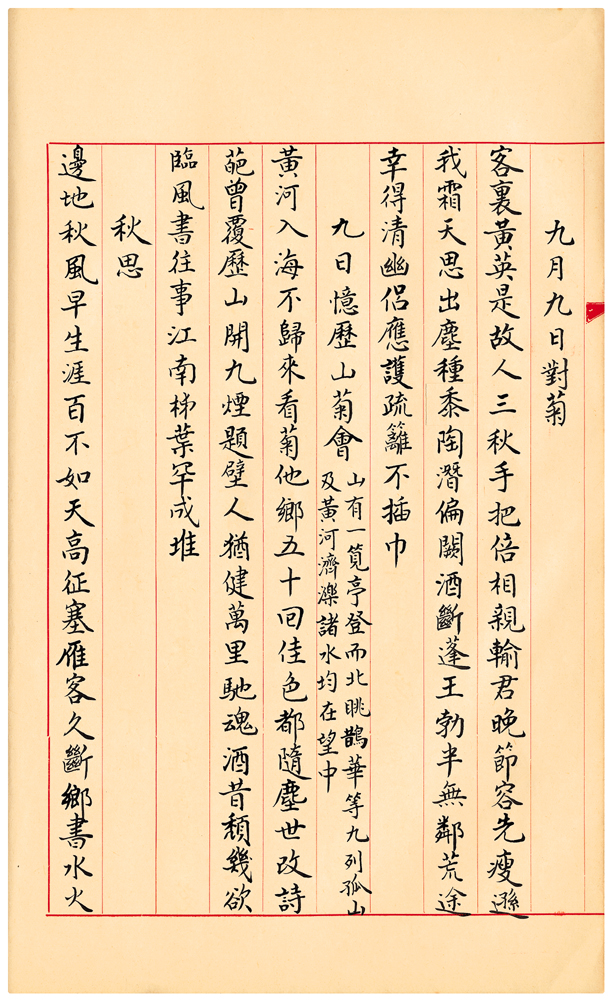 九月九日對菊
客裏黃英是故人三秋手把倍相親輸君晚節容先瘦遜
我霜天思出塵種黍陶潛偏闕酒斷蓬王勃半無鄰荒途
幸得清幽侶應護疏籬不插巾
九日憶歷山菊會
山有一覽亭登而北眺鵲華等九列孤山
及黃河濟濼諸水均在望中
黃河入海不歸來看菊他鄉五十回佳色都隨塵世改詩
葩曾覆歷山開九煙題壁人猶健萬里馳魂酒昔頹幾欲
臨風書往事江南柹葉罕成堆
秋思
邊地秋風早生涯百不如天高征塞雁客久斷鄉書水火